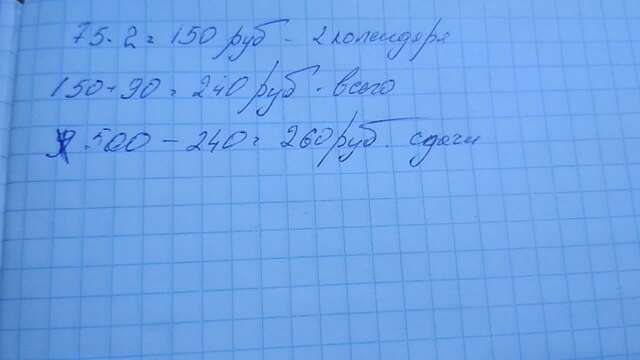 75·2=150 руб - 2 календаря
150+90=240 руб - всего
500-240=260 руб. сдачи